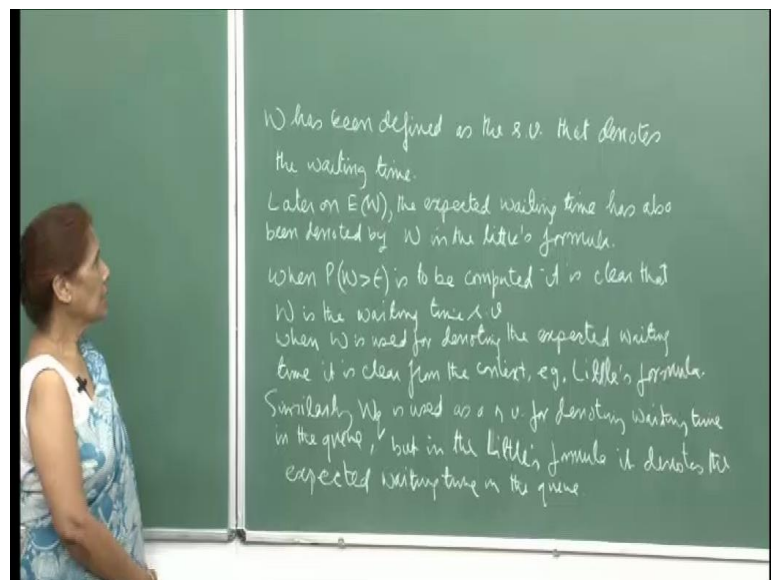 W has been defined as the r.v. that denotes
the waiting time.
Later on E(W), the expected waiting time has also
been denoted by W in the little's formula.
When P(W>t) is to be computed it is clear that
W is the waiting time r.v
When W is used for denoting the expected waiting
time it is clear from the context, eg, Little's formula.
Similarly Wq is used as a r.v. for denoting waiting time
in the queue, but in the Little's formula it denotes the
expected waiting time in the queue